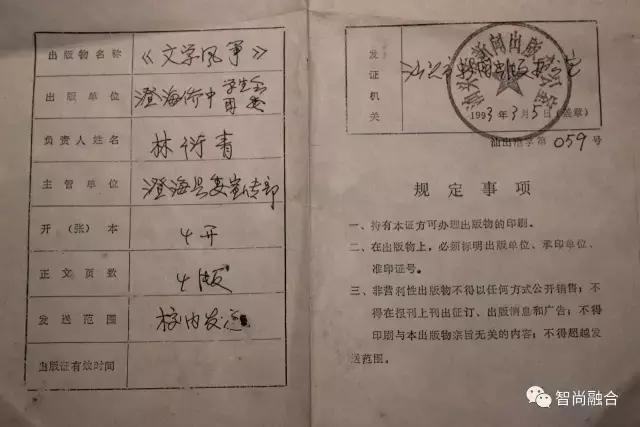 出版物名称 《文学风筝》
出版单位 澄海侨中 学生会
团委
负责人姓名 林衍青
主管单位 澄海县委宣传部
开（张）本 4开
正文页数 4版
发送范围 校内发送
出版证有效时间
发证机关
1993年3月5日（盖章）
第059号
规定事项
一、持有本证方可办理出版物的印刷。
二、在出版物上，必须标明出版单位、承印单位、
准印证号。
三、非营利性出版物不得以任何方式公开销售；不
得在报刊上刊出征订、出版消息和广告；不得
印刷与本出版物宗旨无关的内容；不得超越发
送范围。
智尚融合